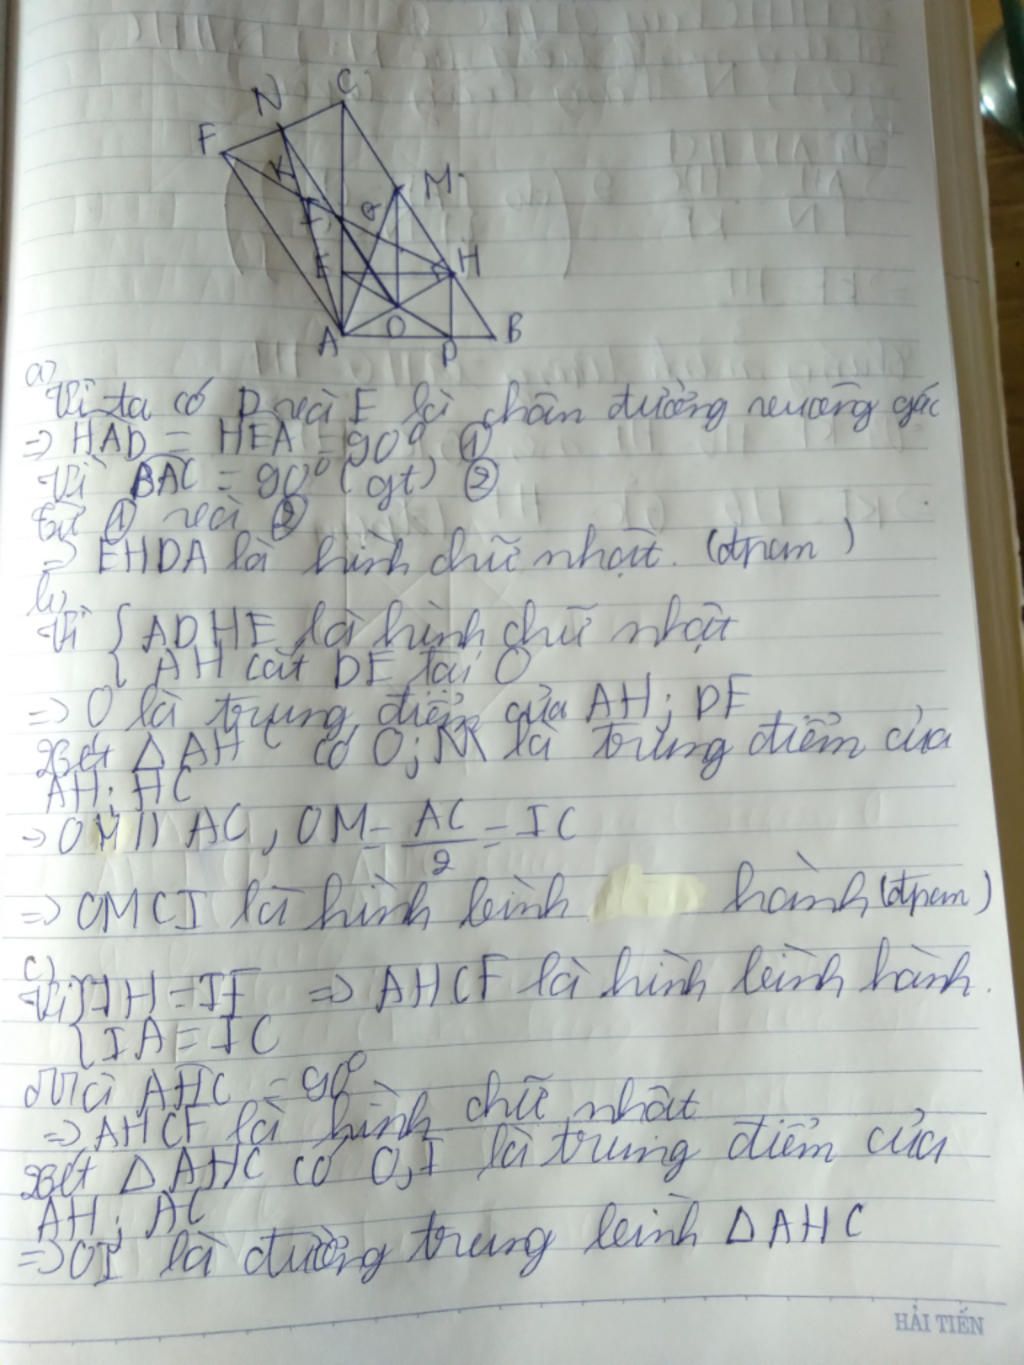 N C
F
K M
I G
E H
A O D B
a)
Vì ta có D và E là chân đường vuông góc
=> HAD = HEA = 90° ①
Vì BAC = 90° (gt) ②
từ ① và ②
=> EHDA là hình chữ nhật. (đpcm)
b)
Vì { ADHE là hình chữ nhật
{ AH cắt DE tại O
=> O là trung điểm của AH; DE
Xét △AHC có O; M là trung điểm của
AH; HC
=> OM // AC, OM = AC/2 = IC
=> OMCI là hình bình hành (đpcm)
c)
Vì { IH = IF => AHCF là hình bình hành.
{ IA = IC
Mà AHC = 90°
=> AHCF là hình chữ nhật
Xét △AHC có O, I là trung điểm của
AH; AC
=> OI là đường trung bình △AHC
HẢI TIẾN